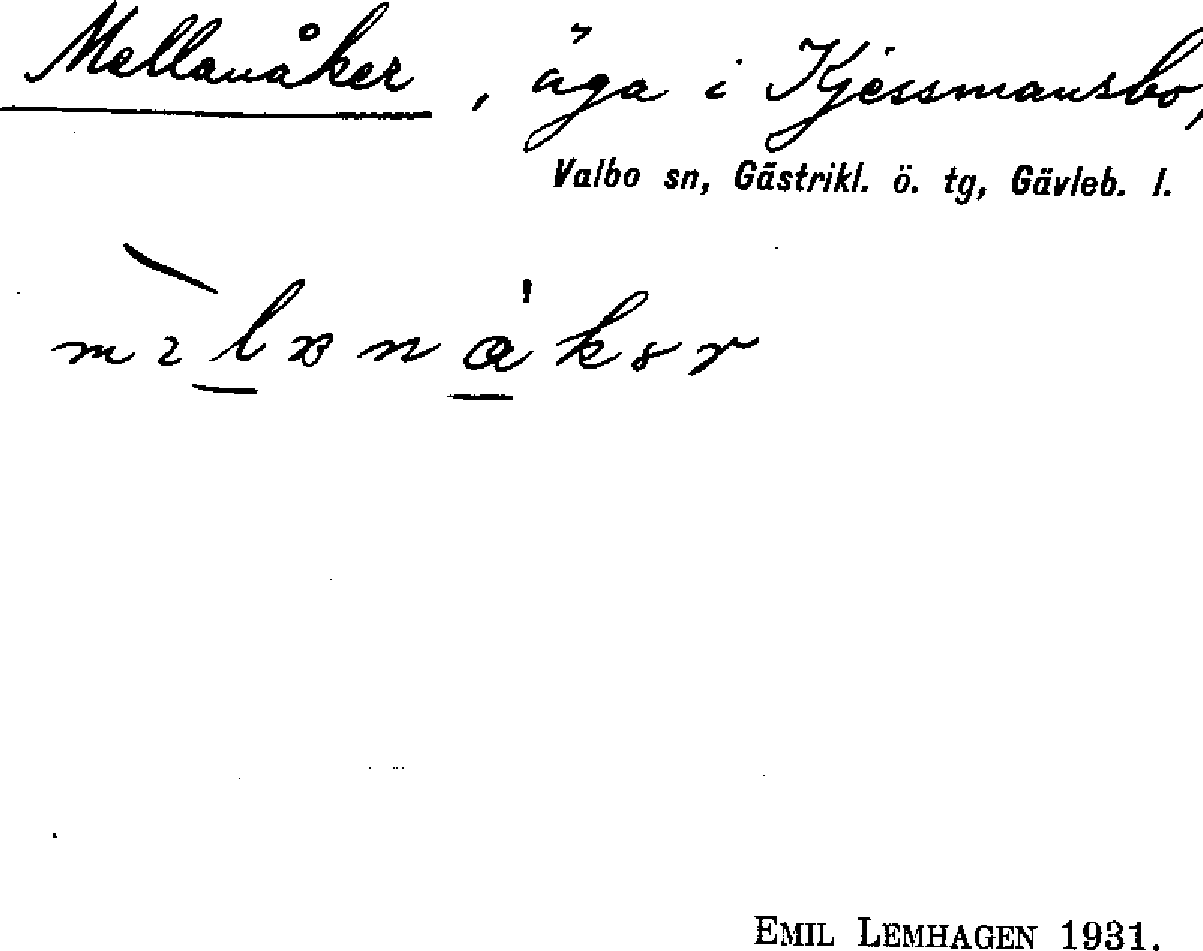 Mellanåker, äga i Kjessmansbo,
Valbo sn, Gästrikl. ö. tg, Gävleb. l.
EMIL LEMHAGEN 1931.